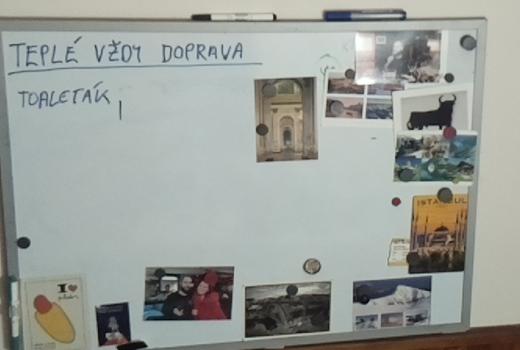 TEPLÉ VŽDY DOPRAVA
TOALEŤÁK
ISTANBUL
I